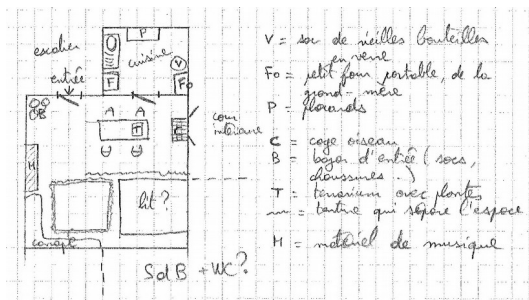 escalier
entrée
cuisine
P
V
F
Fo
A A
T
C
cour
intérieure
B
H
lit?
canapé
SdB + WC?
V = sac de vieilles bouteilles
en verre
Fo = petit four portable, de la
grand-mère
P = placards
C = cage oiseau
B = bazar d'entrée (sacs,
chaussures..)
T = terrarium avec plantes
= tenture qui sépare l'espace
H = matériel de musique